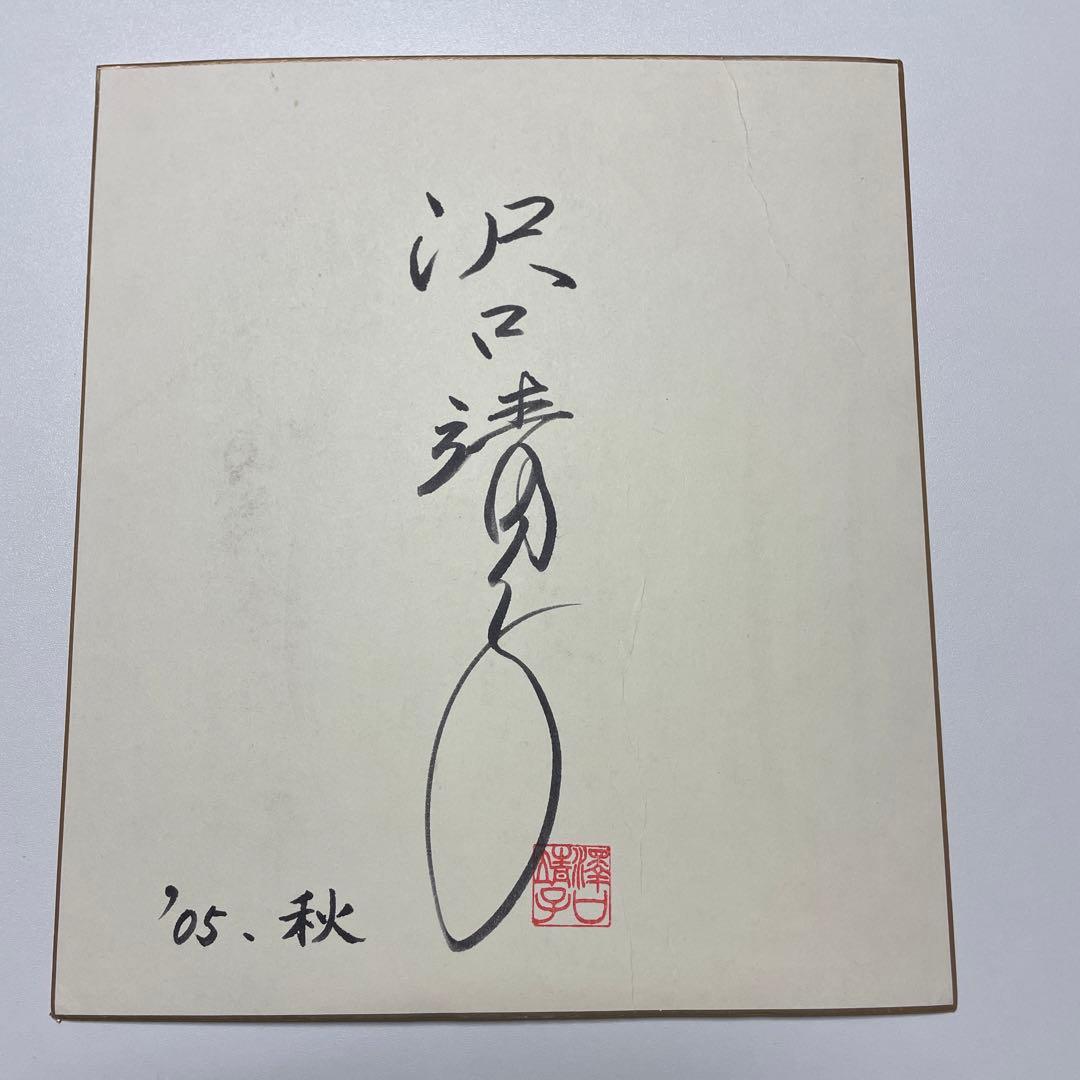 沢口靖子
澤口
靖子
'05、秋